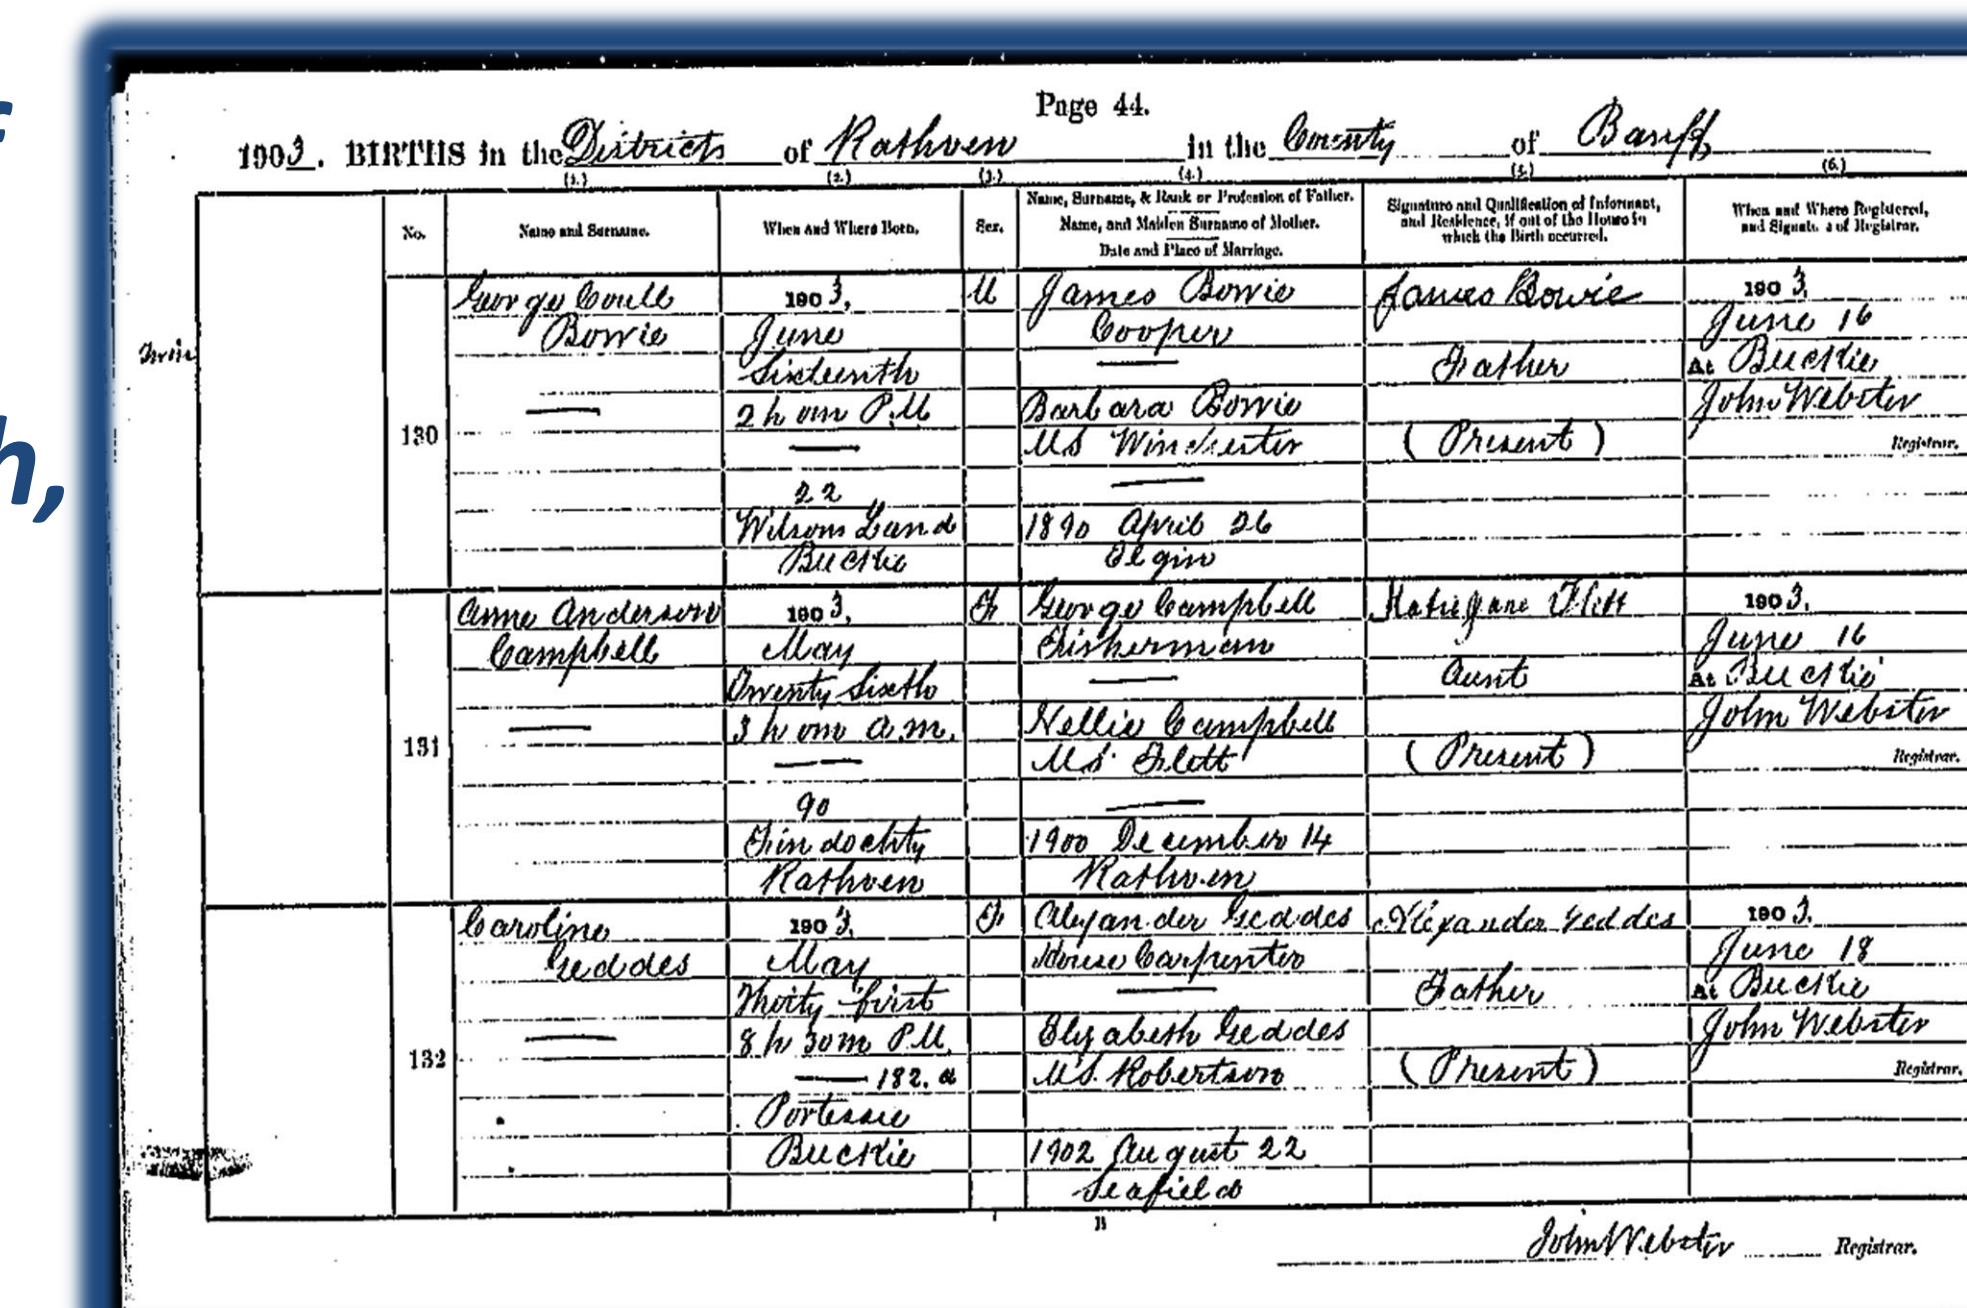 f
h,
Page 44.
1903. BIRTHS in the Districts of Rathven in the County of Banff
(1.) (2.) (3.) (4.) (5.) (6.)
No.
Name and Surname.
When and Where Born.
Sex.
Name, Surname, & Rank or Profession of Father.
Name, and Maiden Surname of Mother.
Date and Place of Marriage.
Signature and Qualification of Informant,
and Residence, if out of the House in
which the Birth occurred.
When and Where Registered,
and Signature of Registrar.
Twin
130
George Coull
Bowie
1903,
June
Sixteenth
2 h om P.M
22
Wilsons Land
Buckie
M
James Bowie
Cooper
Barbara Bowie
MS Winchester
1890 April 26
Elgin
James Bowie
Father
(Present)
1903,
June 16
At Buckie
John Webster
Registrar.
131
Anne Anderson
Campbell
1903,
May
Twenty Sixth
3 h om a.m.
90
Findochty
Rathven
F
George Campbell
Fisherman
Nellie Campbell
M.S. Flett
1900 December 14
Rathven
Jane Flett
Aunt
(Present)
1903,
June 16
At Buckie
John Webster
Registrar.
132
Caroline
Geddes
1903,
May
Thirty first
8 h 30m P.M.
182. a
Portessie
Buckie
F
Alexander Geddes
House Carpenter
Elizabeth Geddes
M.S. Robertson
1902 August 22
Seafield
Alexander Geddes
Father
(Present)
1903.
June 18
At Buckie
John Webster
Registrar.
B
John Webster Registrar.